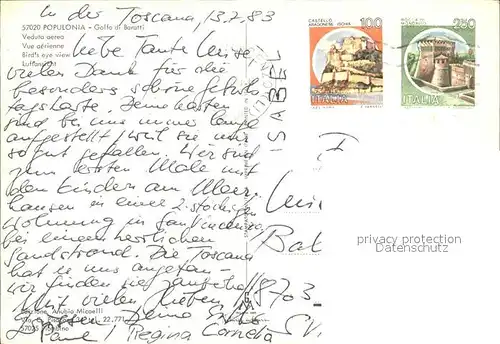 In der Toscana, 13.7.83
57020 POPULONIA - Golfo di Baratti
Veduta aerea
Vue aérienne
Bird's eye view
Luftansicht
Liebe Tante Luise
vielen Dank für die
besonders schöne Geburts
tagskarte. Deine Karten
sind bei uns immer lange
aufgestellt, weil sie uns
so gut gefallen. Wir sind
zum ersten Male mit
den Kindern am Meer,
hausen in einer 2-stöckigen
Wohnung in San Vincenzo
bei einem herrlichen
Sandstrand. Die Toscana
hat es uns angetan -
wir finden sie zauberhaft
Mit vielen lieben
Grüssen Deine
Paul, Regina Cornelia
Edizione, Anubio Micaelli
22.771
CASTELLO
ARAGONESE - ISCHIA
100
ITALIA
250
ITALIA
ISABEL
8703
privacy protection
Datenschutz